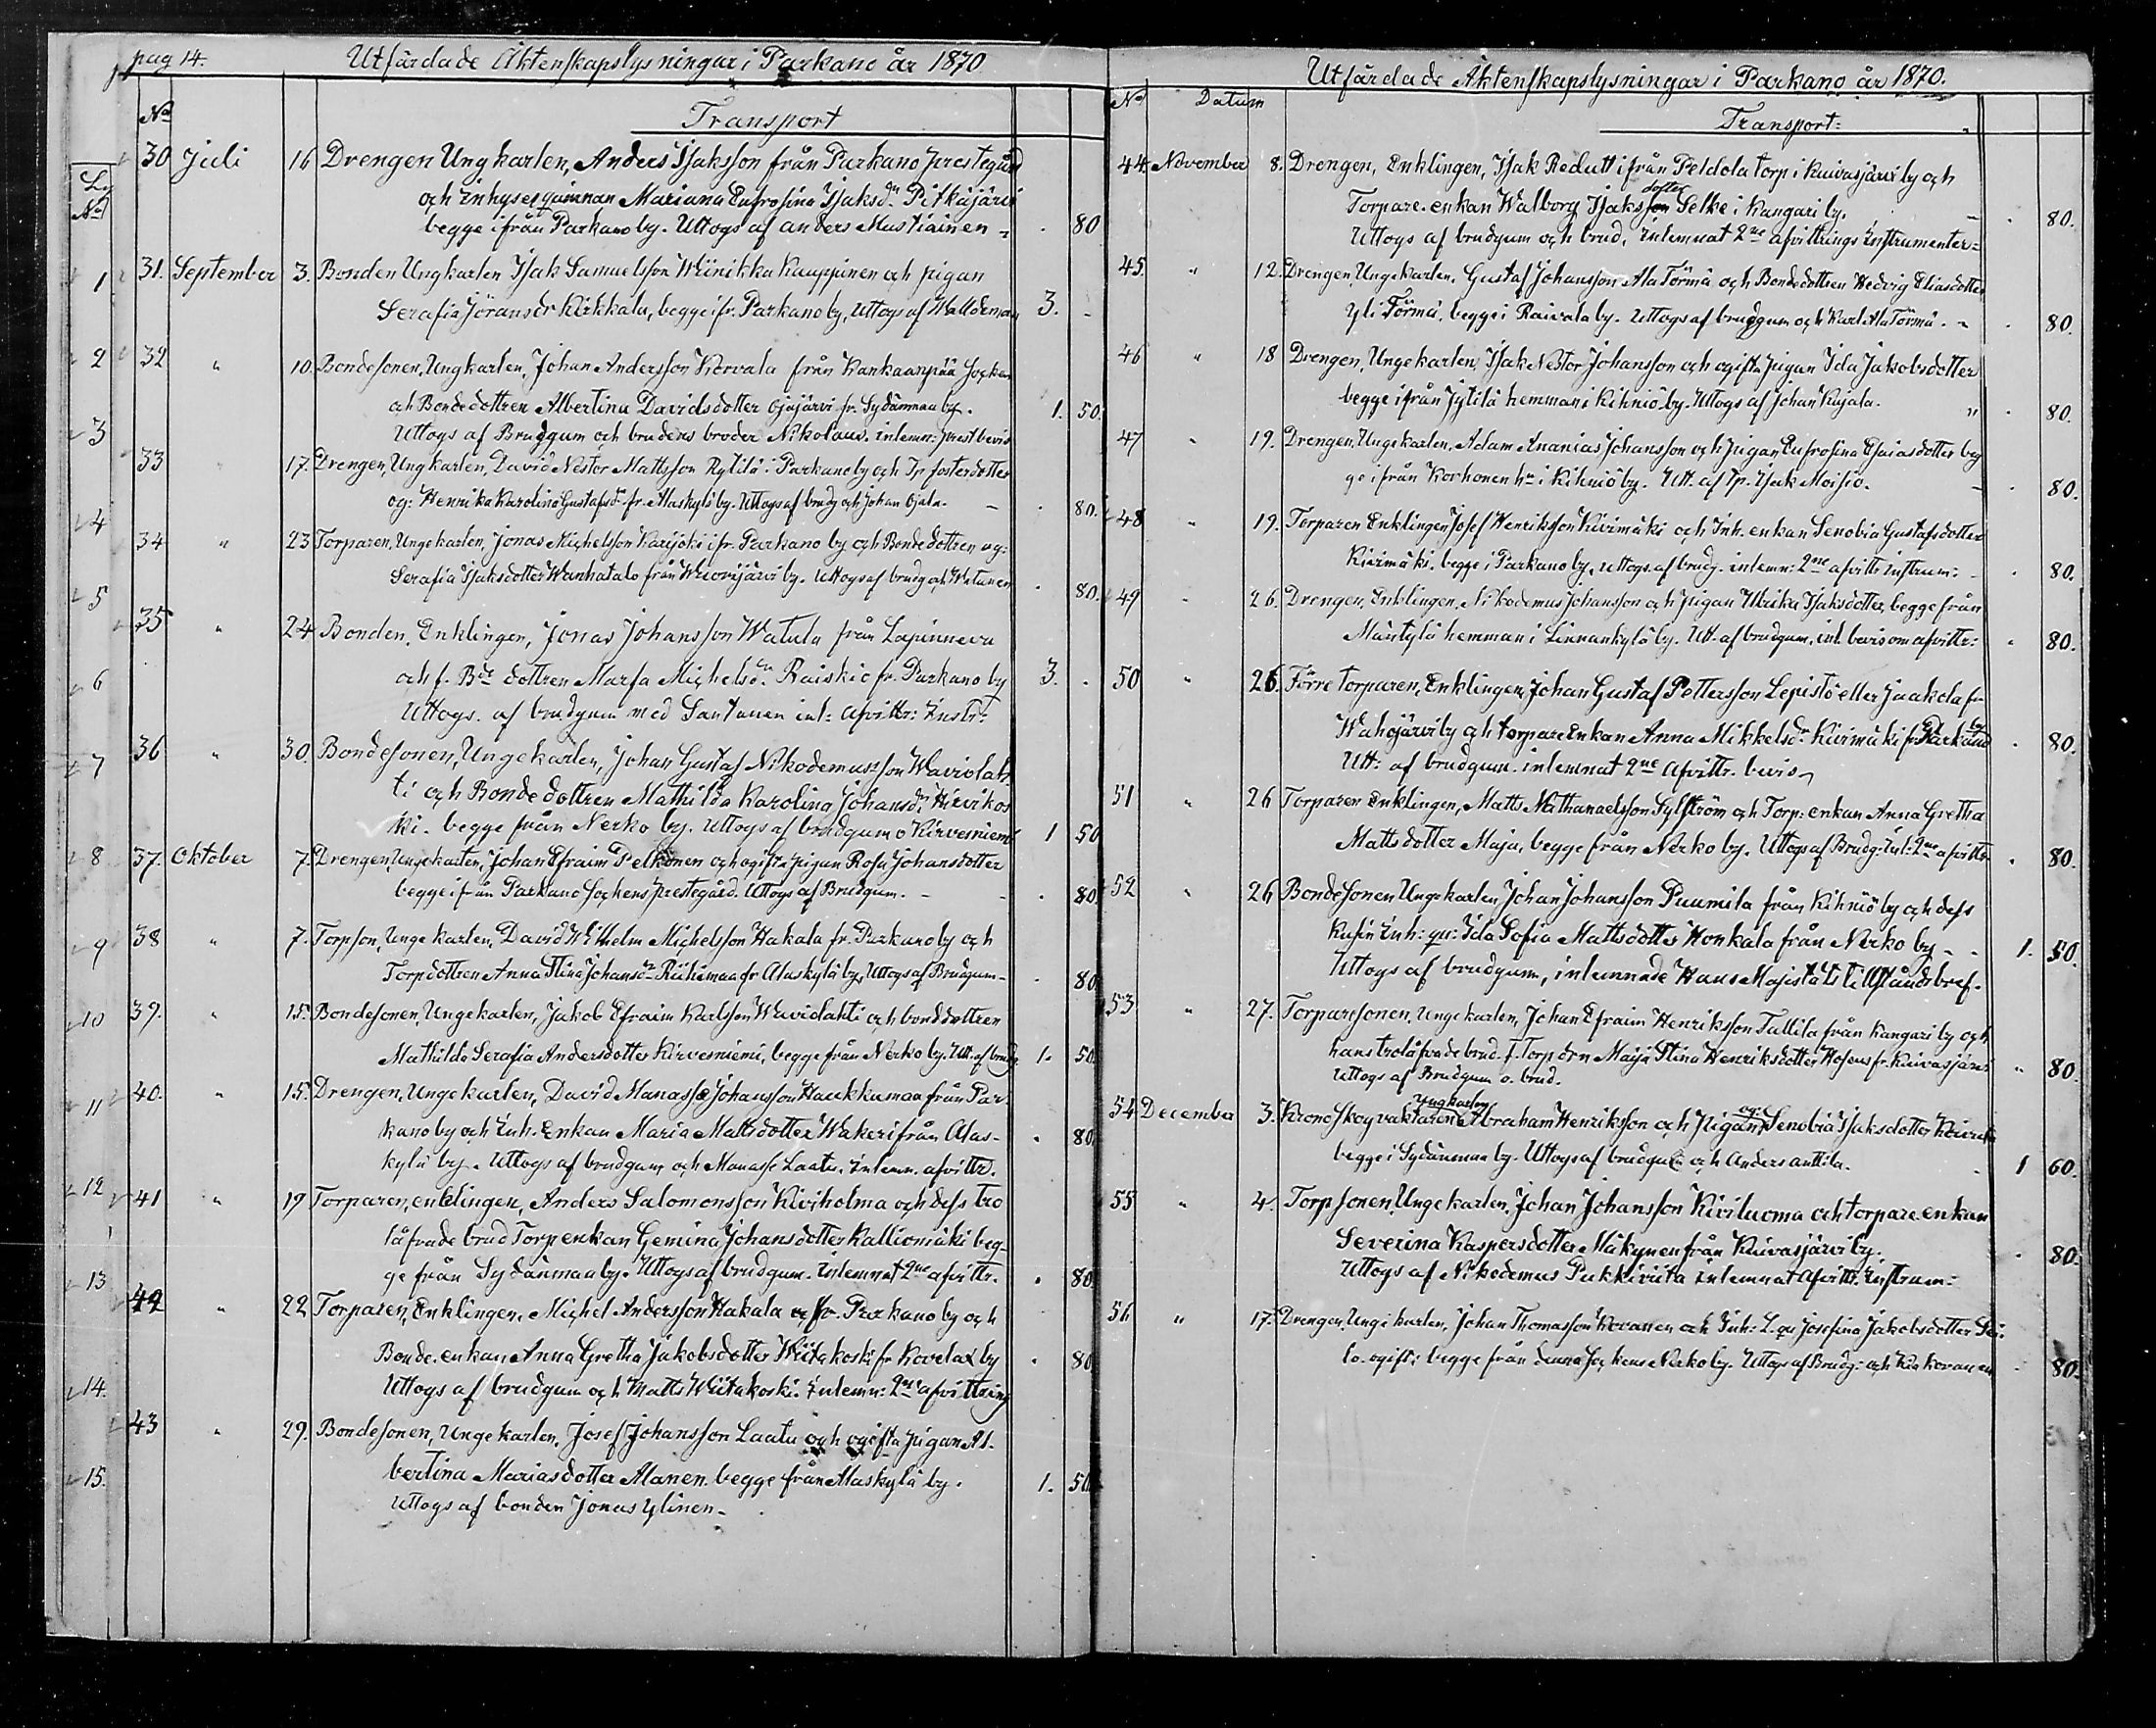 pag 14. Utfärdade Äktenskapslysningar i Parkano år 1870
No Transport
Ly No
30 Juli 16 Drengen Ungkarlen, Anders Isaksson från Parkano Prestegård
och Inhyses qvinnan Mariana Eufrosina Isaksdr Pitkäjärvi
begge ifrån Parkano by. Uttogs af Anders Mustiainen - . 80
1 31. September 3. Bonden Ungkarlen Isak Samuelsson Wiinikka Kauppinen och pigan
Serafia Göransdr Kirkkala, begge ifr. Parkano by, Uttogs af Walldeman 3. -
2 32 " 10. Bondesonen, Ungkarlen, Johan Andersson Korvala från Kankaanpää Socken
och Bondedottren Albertina Davidsdotter Ojajärvi fr. Sydänmaa by. 1. 50.
3 Uttogs af Brudgum och brudens broder Nikolaus. inlemn: prest bevis
33 " 17. Drengen, Ungkarlen, David Nestor Mattsson Rytilä i Parkano by och Tp fosterdotter
og: Henrika Karolina Gustafsdr fr. Alaskylä by. Uttogs af brudg och Johan Ojala. - . 80.
4 34 " 23 Torparen, Ungekarlen, Jonas Michelsson Karijoki ifr. Parkano by och Bondedottren og:
Serafia Isaksdotter Wanhatalo från Wuorijärvi by. Uttogs af brudg och Watanen . 80.
5 35 " 24 Bonden, Enklingen, Jonas Johansson Watula från Lapinneva
och f. Bde dottren Marfa Michelsdr Raiskio fr. Parkano by 3. .
6 Uttogs. af brudgum med Santanen inl: afvittr: Instr:
7 36 " 30. Bondesonen, Ungekarlen, Johan Gustaf Nikodemusson Waviolah-
ti och Bondedottren Mathilda Karolina Johansdr Hirvikos
ki. begge från Nerko by. Uttogs af brudgum o Kirvesniemi 1 50
8 37. Oktober 7. Drengen, Ungekarlen, Johan Efraim Pelkonen och ogifta pigan Rosa Johansdotter
begge ifrån Parkano Sockens prestegård. Uttogs af Brudgum. - . 80.
9 38 " 7. Torpson, Unge karlen, David Wilhelm Michelsson Hakala fr. Parkano by och
Torpdottren Anna Stina Johansdr Riihimaa fr Alaskylä by, Uttogs af Brudgum - . 80
10 39. " 15. Bondesonen, Ungekarlen, Jakob Efraim Karlsson Waviolahti och bonddottren
Mathilda Serafia Andersdotter Kirvesniemi, begge från Nerko by. Utt. af brudg. 1. 50.
11 40. " 15. Drengen, Ungekarlen, David Manasse Johansson Haukkamaa från Par-
kano by och Inh. Enkan Maria Mattsdotter Wakeri från Alas- . 80.
kylä by. Uttogs af brudgum och Manasse Laatu. Inlemn. afvittr.
12 41 " 19 Torparen, enklingen, Anders Salomonsson Kiviholma och dess tro
låfvade brud Torpenkan Gemina Johansdotter Kalliomäki beg-
13 ge från Sydänmaa by. Uttogs af brudgum. Inlemnat 2ne afvittr. . 80
42 " 22 Torparen, Enklingen, Michel Andersson Hakala fr. Parkano by och
Bonde. enkan Anna Gretha Jakobsdotter Wiitakoski fr Kovelax by . 80
14. Uttogs af brudgum och Matts Wiitakoski. Inlemn: 2ne afvittring
43 " 29. Bondesonen, Ungekarlen, Josef Johansson Laatu och ogifta pigan Al-
15. bertina Mariasdotter Alanen. begge från Alaskylä by. 1. 50.
Uttogs af bonden Jonas Ylinen -
Utfärdade Äktenskapslysningar i Parkano år 1870.
No Datum Transport:
44. November 8. Drengen, Enklingen, Isak Redutt ifrån Peldola torp i Kuivasjärvi by och
dotter
Torpare. enkan Walborg Isaksson Selke i Kangari by. - . 80.
Uttogs af brudgum och brud, Inlemnat 2ne afvittrings Instrumenter -
45. " 12. Drengen, Ungekarlen. Gustaf Johansson Ala Törmä och Bondedottren Hedvig Eliasdotter
Yli Törmä, begge i Raivala by. Uttogs af brudgum och Karl Ala Törmä. - . 80.
46 " 18 Drengen, Ungekarlen, Isak Nestor Johansson och ogifta pigan Ida Jakobsdotter
begge ifrån Jylilä hemman i Kihniö by. Uttogs af Johan Kujala. " . 80.
47 " 19. Drengen, Ungekarlen. Adam Ananias Johansson och pigan Eufrosina Esaiasdotter beg
ge ifrån Korhonen hn i Kihniö by. Utt. af Tp. Isak Moisio. - . 80.
48 " 19. Torparen Enklingen Josef Henriksson Kivimäki och Inh. enkan Senobia Gustafsdotter
Kivimäki. begge i Parkano by. uttogs. af brudg. inlemn: 2ne afvittr instrum: - . 80.
49 " 26. Drengen, Enklingen, Nikodemus Johansson och pigan Ulrika Isaksdotter, begge från
Mäntylä hemman i Linnankylä by. Utt. af brudgum, inl. bevis om afvittr: . 80.
50 " 26. Förre torparen, Enklingen, Johan Gustaf Pettersson Lepistö eller Jaakola fr
Wahojärvi by och torpare Enkan Anna Mikkelsdr Kivimäki fr Parkano by . 80.
Utt: af brudgum. inlemnat 2ne Afvittr. bevis
51 " 26 Torparen Enklingen, Matts Nathanaelsson Sylström och Torp. enkan Anna Gretha
Mattsdotter Maja, begge från Nerko by. Uttogs af Brudg: Inl: 2ne afvittr. . 80.
52 " 26 Bondesonen Ungekarlen Johan Johansson Puumila från Kihniö by och dess
Kusin Inh: qv: Ida Sofia Mattsdotter Honkala från Nerko by - - 1. 50.
Uttogs af brudgum, inlemnade Hans Majistäts tillståndsbref.
53 " 27. Torparesonen, Ungekarlen, Johan Efraim Henriksson Tallila från Kangari by och
hans trolåfvade brud. f. Torp drn Maija Stina Henriksdotter Hosens fr. Kuivasjärvi " 80.
Uttogs af Brudgum o. brud.
Ungkarlen og:
54 December 3. Kronoskogvaktaren Abraham Henriksson och Pigan Senobia Isaksdotter
begge i Sydänmaa by. Uttogs af brudgum och Anders Anttila. - 1 60.
55 " 4. Torpsonen, Ungekarlen, Johan Johansson Kiviluoma och torpare enkan
Severina Kaspersdotter Mäkynen från Kuivasjärvi by. . 80.
Uttogs af Nikodemus Pukkiviita inlemnat Afvittr. Instrum:
56 " 17. Drengen, Ungekarlen, Johan Thomasson Kovanen och Inh: L. qv Josefina Jakobsdotter Sei-
lo. ogift; begge från denna Sockens Nerko by. Uttogs af Brudg: och Kovanen 80.